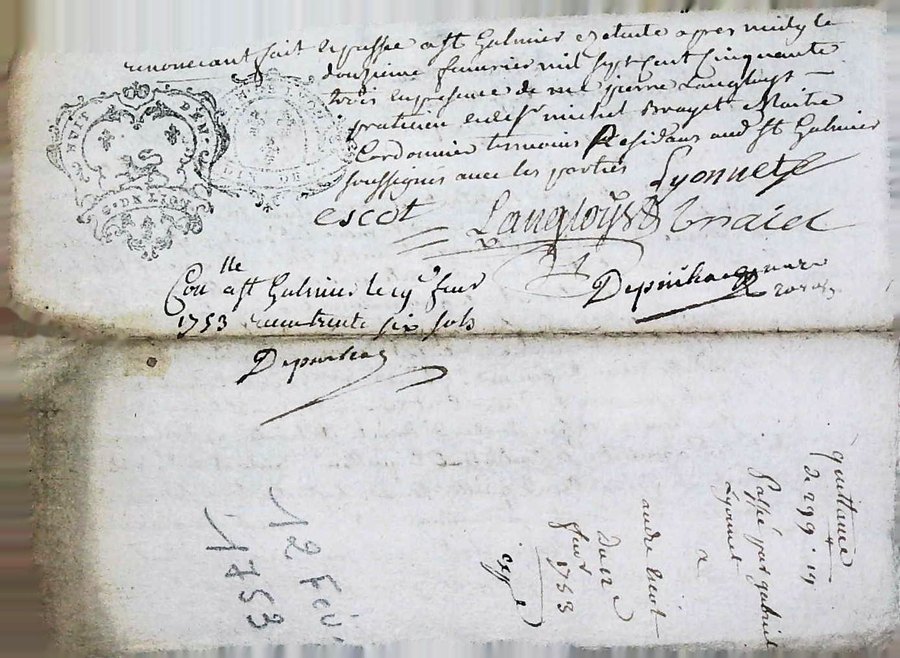 renoncant fait et passé a st Galmier et etude apres midy le
douzieme fevrier mil sept cent cinquante
trois en presence de me pierre Langloys
praticien et de sr michel Brayet Maitre
Cordonnier temoins Residans aud st Galmier
soussignés avec les parties Lyonnet
escot Langloys Braiet
Depuihac
Conlle a st Galmier le fevr
1753 trente six sols
Depuihac
quittance
de 299
Passé par gabriel
Lyonnet
a
andre Escot
Du 12
fevr 1753
12 Fév.
1753
HUIT DEN.
G. DE LYON